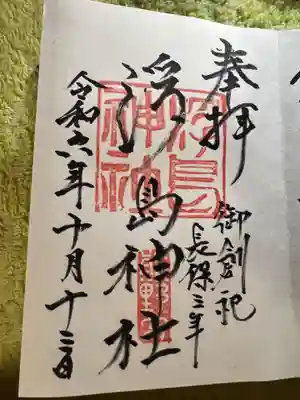 奉拝
御創祀
長保三年
浮島神社
浮島神社
令和六年十月十三日